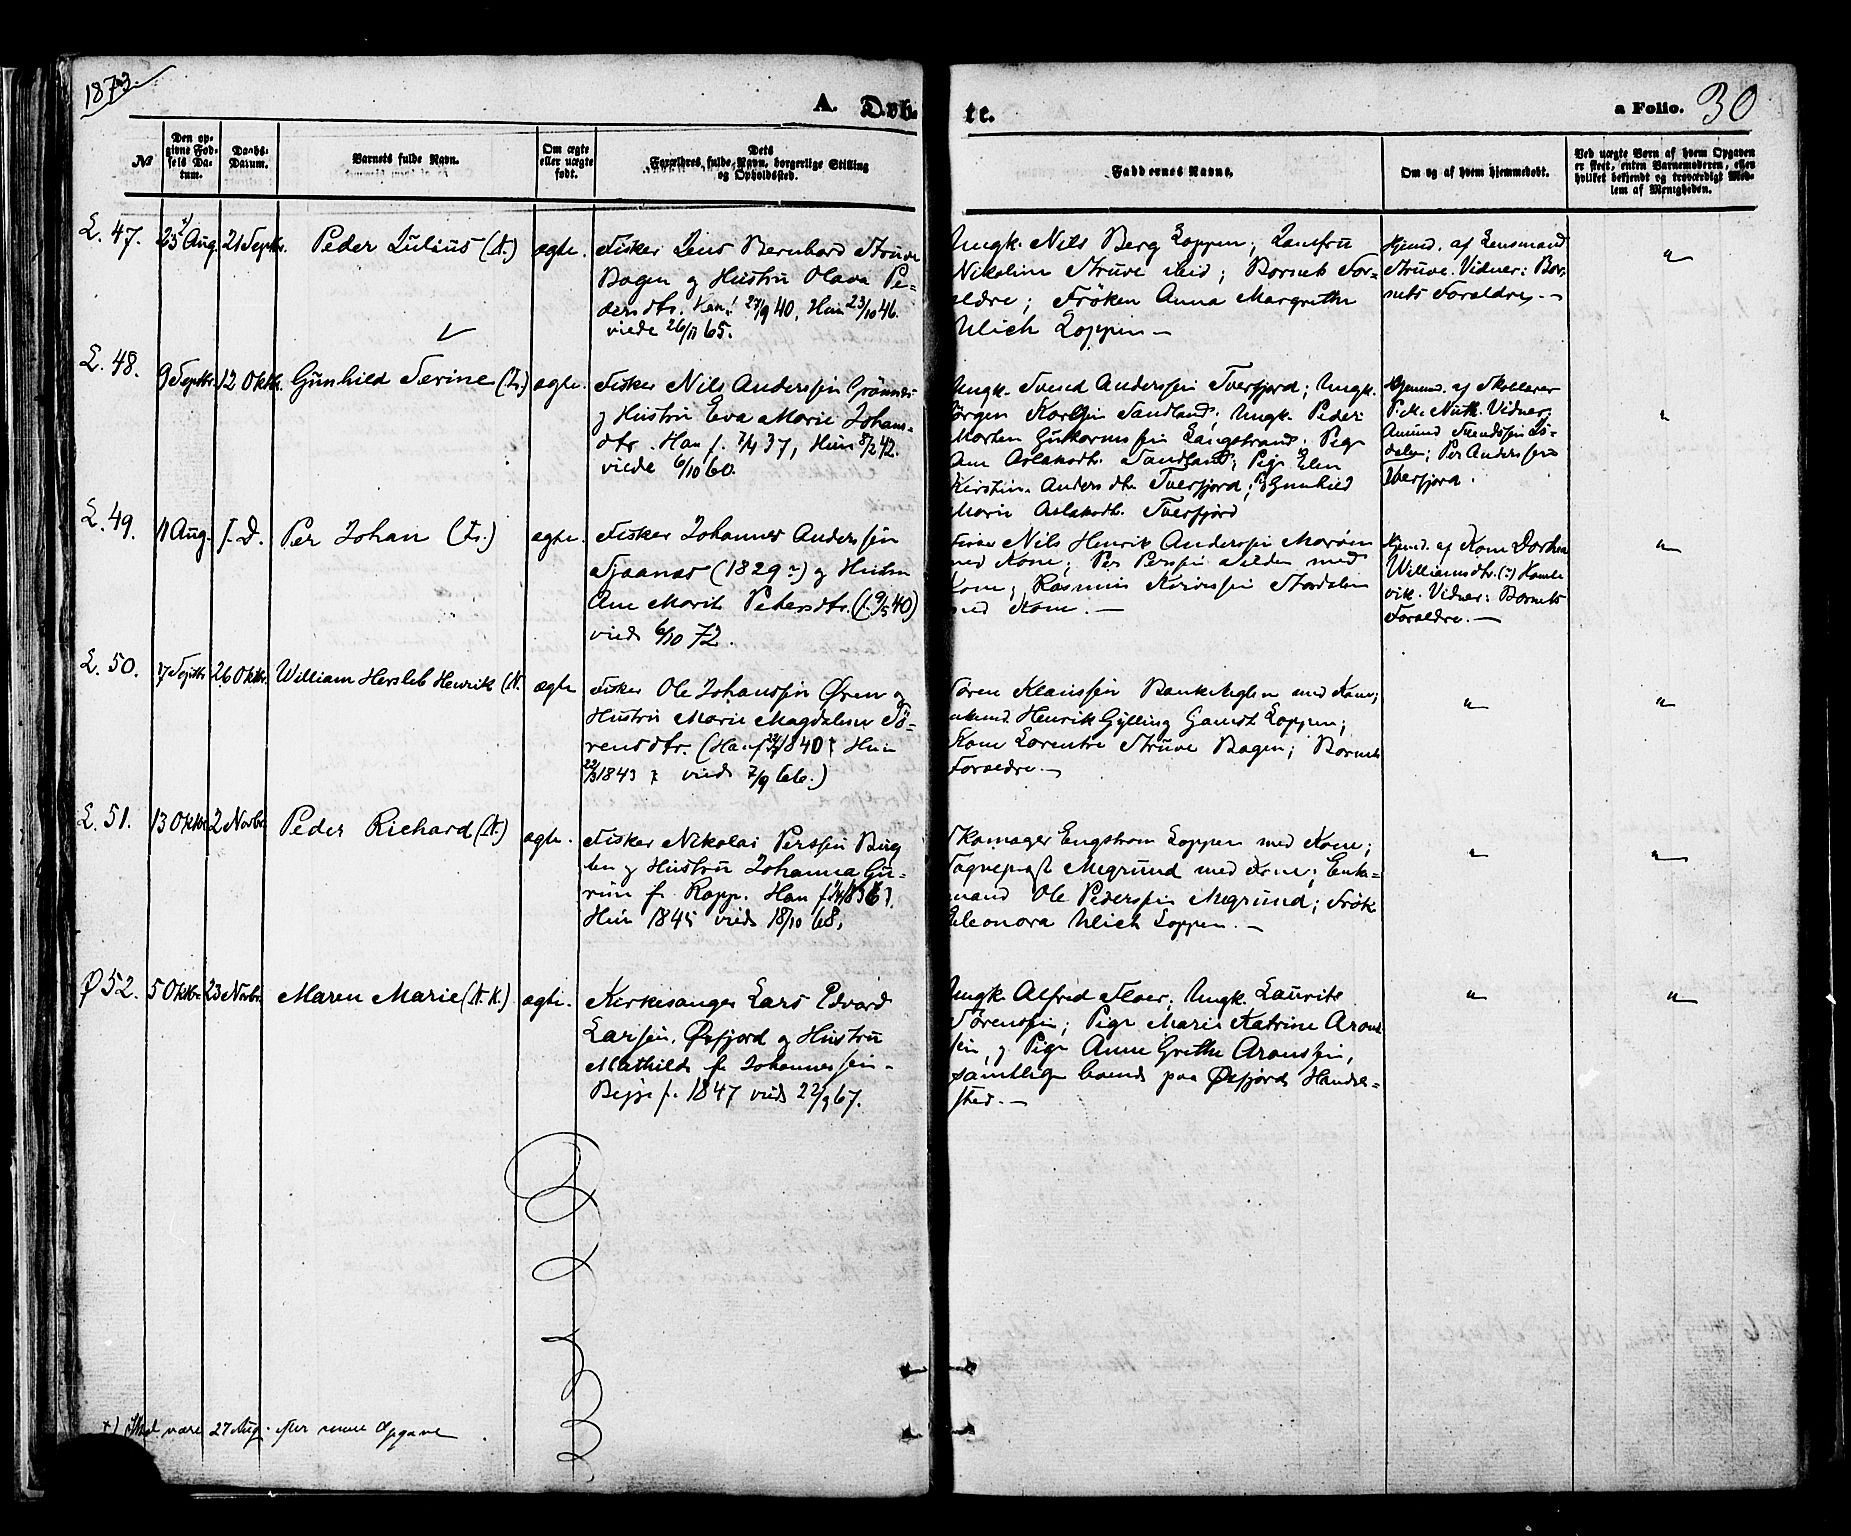 1873.
A. Døb-
te.
a Folio. 30
№
Den op-
givne Fød-
sels Da-
tum.
Daabs-
Datum.
Barnets fulde Navn.
Om ægte
eller uægte
født.
Dets
Forældres fulde Navn, borgerlige Stilling
og Opholdssted.
Faddernes Navne.
Om og af hvem hjemmedøbt.
Ved uægte Børn af hvem Opgaven
er skeet, enten Barnemoderen, eller
hvilket bekjendt og troværdigt Med-
lem af Menigheden.
L. 47.
25 Aug. x)
21 Septbr.
Peder Julius (N.)
ægte.
Fisker Jens Bernhard Struve
Bagen og Hustru Olava Pe-
dersdtr. Han f. 27/9 40, Hun 23/10 46.
viede 26/11 65.
Ungk. Nils Berg Loppen; Jomfru
Nikoline Struve ibid; Barnets For-
ældre; Frøken Anna Margrethe
Ulich Loppen —
Hjemd. af Lensmand
Struve. Vidner: Bar-
nets Forældre. —
"
L. 48.
9 Septbr.
12 Oktb.
Gunhild Serine (Fs.)
ægte.
Fisker Nils Anderssen
og Hustru Eva Marie Johans-
dtr. Han f. 7/4 37, Hun 8/2 42.
viede 6/10 60.
Ungk. Svend Anderssen Tverfjord; Ungk.
Jørgen Sandland; Ungk. Peder
Morten Langstrand; Pige
Ane Aslaksdtr. Sandland; Pige Elen
Kirstine Andersdtr Tverfjord; Pg Gunhild
Marie Aslaksdtr. Tverfjord
Hjemmed. af Skolelærer
Vidner:
Amund Svendssen
Per Anderssen
Tverfjord.
"
L. 49.
11 Aug.
s. D.
Per Johan (Fs.)
ægte
Fisker Johannes Anderssen
(1829?) og Hustru
Ane Marit Petersdtr. (f. 9/5 40)
viede 6/10 72.
Nils Henrik Anderssen
med Kone; Per Perssen Silden med
Kone; Rasmus
med Kone. —
Hjemd. af Kone Dorthea
Williamsdtr. (?) Komle
vik. Vidner: Barnets
Forældre. —
"
L. 50.
7 Septbr
26 Oktbr.
William Hersleb Henrik (N.
ægte
Fisker Ole Johanssen Øren og
Hustru Marie Magdalene Sø-
rensdtr. (Han f. 1840; Hun
1843; viede 7/9 66.)
Søren Klaussen med Kone;
Henrik Gylling Loppen;
Kone Lorentze Struve Bagen; Barnets
Forældre. —
"
"
L. 51.
13 Oktbr
2 Novbr.
Peder Richard (N.)
ægte.
Fisker Nikolai Perssen Berg
ten og Hustru Johanna Gu-
rine f. Rapp.
Hun 1845 viede 18/10 68.
Skomager Engstrøm Loppen med Kone;
Sogneprest Megrund med Kone; Enke-
mand Ole Pederssen Megrund; Frøk.
Eleonora Ulich Loppen. —
"
"
Ø 52.
5 Oktbr.
23 Novbr.
Maren Marie (N. K.)
ægte.
Kirkesanger Lars Edvard
Larsen, Øxfjord og Hustru
Mathilde f. Johannessen.
Begge f. 1847 viede 22/9 67.
Ungk. Alfred Floer; Ungk. Laurits
Sørenssen; Pige Marie Katrine Arons
sen, og Pige Anne Grethe Aronssen,
samtlige boende paa Øxfjords Handel-
sted. —
"
"
x) Skal være 27 Aug. efter senere Opgave.